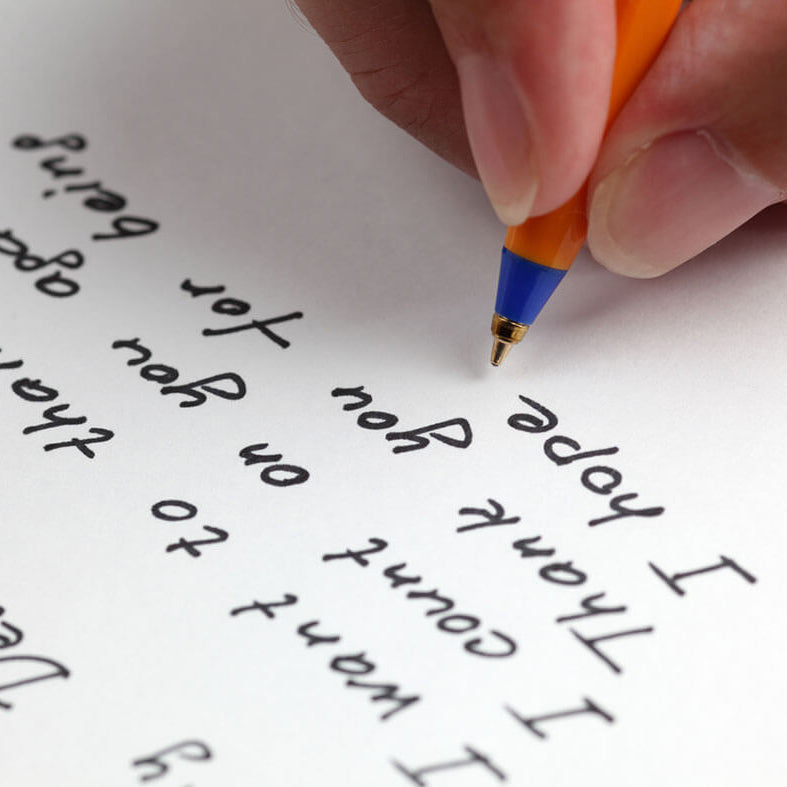 I want to
I count on you
Thank you for being
I hope